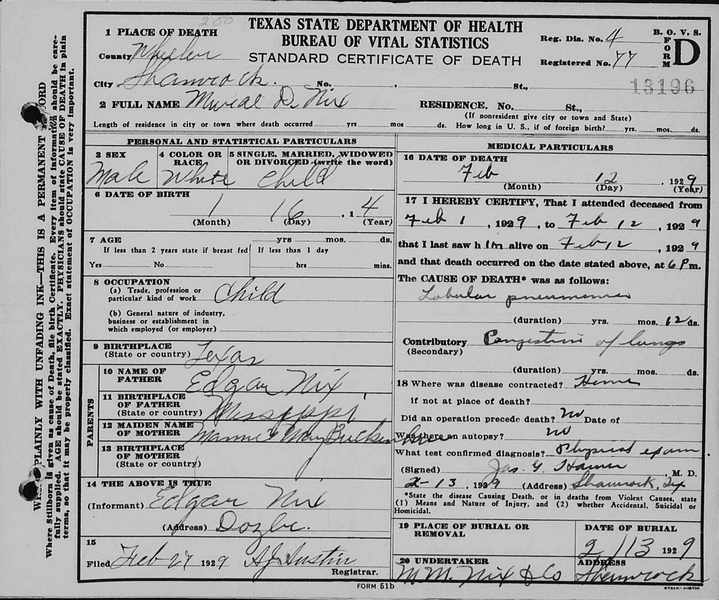 TEXAS STATE DEPARTMENT OF HEALTH
BUREAU OF VITAL STATISTICS
STANDARD CERTIFICATE OF DEATH
Reg. Dis. No. 4
Registered No. 77
B. O. V. S.
FORM D
13196
1 PLACE OF DEATH
County Wheeler
City Shamrock No. St.,
2 FULL NAME D. Nix
RESIDENCE. No. St.,
(If nonresident give city or town and State)
Length of residence in city or town where death occurred yrs. mos. ds. How long in U. S., if of foreign birth? yrs. mos. ds.
PERSONAL AND STATISTICAL PARTICULARS
3 SEX
Male
4 COLOR OR RACE
White
5 SINGLE, MARRIED, WIDOWED OR DIVORCED (write the word)
Child
6 DATE OF BIRTH
1 16
(Month) (Day) (Year)
7 AGE yrs mos ds.
If less than 2 years state if breast fed If less than 1 day
Yes No hrs mins
8 OCCUPATION
(a) Trade, profession or particular kind of work Child
(b) General nature of industry, business or establishment in which employed (or employer)
9 BIRTHPLACE
(State or country) Texas
PARENTS
10 NAME OF FATHER Edgar Nix
11 BIRTHPLACE OF FATHER
(State or country) Mississippi
12 MAIDEN NAME OF MOTHER
13 BIRTHPLACE OF MOTHER
(State or country)
14 THE ABOVE IS TRUE
(Informant) Edgar Nix
(Address)
15
Filed Feb 27 1929 Austin
Registrar.
MEDICAL PARTICULARS
16 DATE OF DEATH
Feb 12, 1929
(Month) (Day) (Year)
17 I HEREBY CERTIFY, That I attended deceased from
Feb 1, 1929, to Feb 12, 1929
that I last saw him alive on Feb 12, 1929
and that death occurred on the date stated above, at 6 P m.
The CAUSE OF DEATH* was as follows:
Lobular pneumonia
(duration) yrs. mos. 12 ds.
Contributory Congestion of lungs
(Secondary)
(duration) yrs. mos. ds.
18 Where was disease contracted? Home
if not at place of death?
Did an operation precede death? no Date of
Was there an autopsy? no
What test confirmed diagnosis? Physical exam
(Signed) Jas. M. D.
2-13, 1929 (Address) Shamrock, Tex
*State the disease Causing Death, or in deaths from Violent Causes, state (1) Means and Nature of Injury, and (2) whether Accidental, Suicidal or Homicidal.
19 PLACE OF BURIAL OR REMOVAL
DATE OF BURIAL
2/13 1929
20 UNDERTAKER
M.M. Nix & Co
ADDRESS
Shamrock
FORM 51b